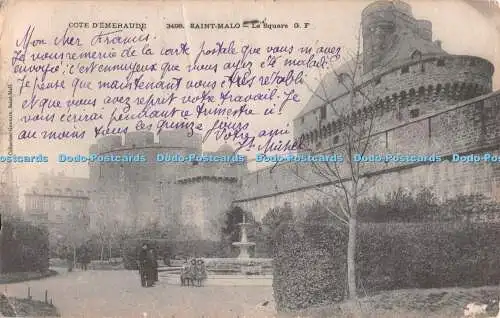 COTE D'EMERAUDE 3498. SAINT-MALO — Le Square G. F
Mon cher Francis.
Je vous remercie de la carte postale que vous m'avez
envoyée; c'est ennuyeux que vous ayez été malade.
Je pense que maintenant vous êtes rétabli
et que vous avez reprit votre travail. Je vous
écrirai pendant ce trimestre ici
au moins tous les quinze jours
Votre ami
Collections Germain, Saint-Malo
Todo-Postales Todo-Postales Todo-Postales Todo-Postales Todo-Postales Todo-Postales